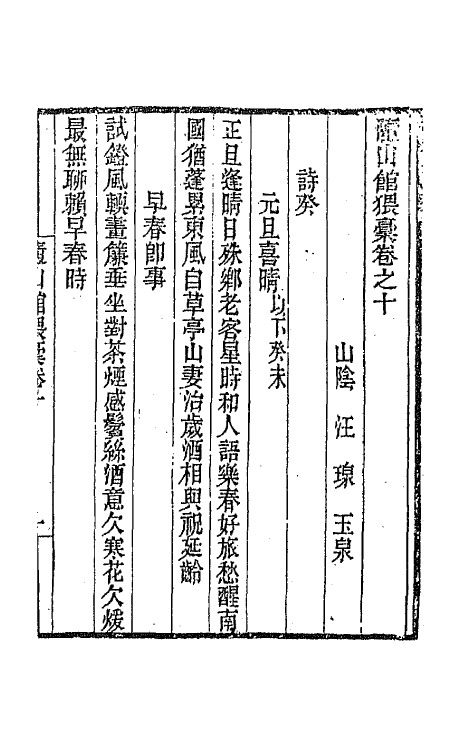 隨山館猥稾卷之十
山陰 汪 瑔 玉泉
詩癸
元旦喜晴以下癸未
正旦逢晴日殊鄉老客星時和人語樂春好旅愁醒南
國猶蓬累東風自草亭山妻治歲酒相與祝延齡
早春卽事
試鐙風輭畫簾垂坐對茶煙感鬢絲酒意欠寒花欠煖
最無聊賴早春時
隨山館猥稾卷十
一